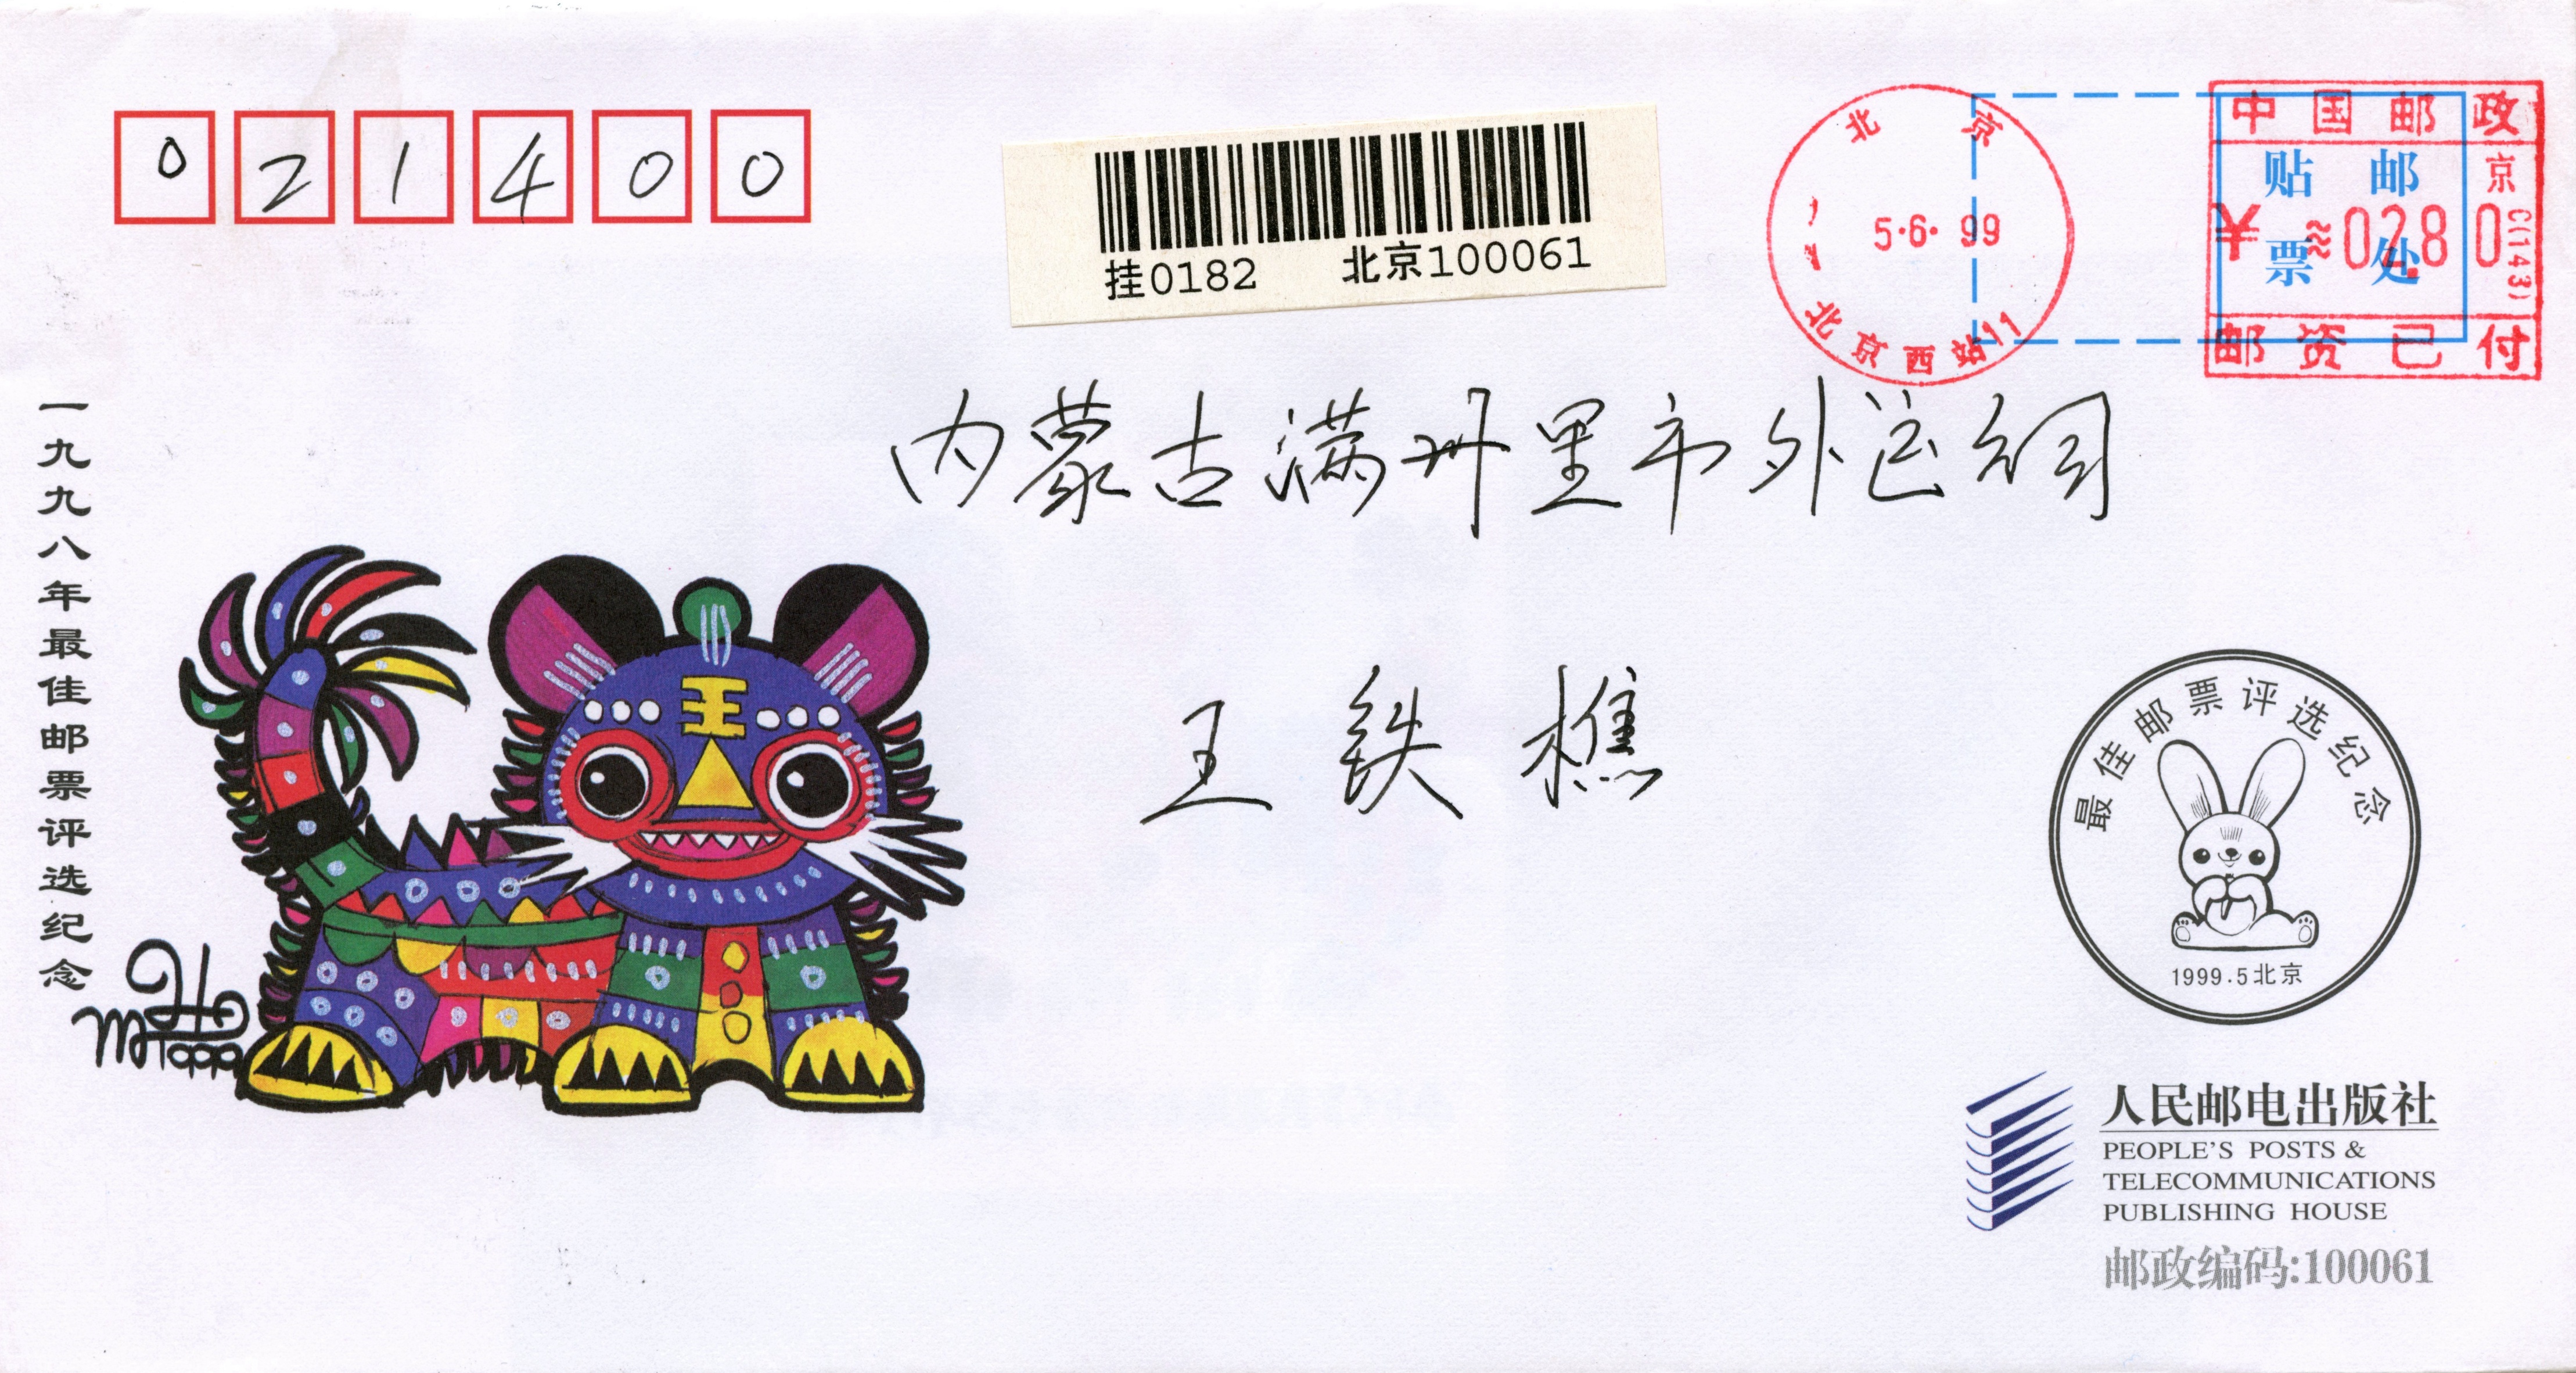 021400
挂0182 北京100061
北京
5·6·99
北京西站11
中国邮政
贴邮
票处
京
C(143)
¥≋02.80
邮资已付
内蒙古满州里市外运公司
王铁樵
一九九八年最佳邮票评选纪念
王
1999
最佳邮票评选纪念
1999.5北京
人民邮电出版社
PEOPLE'S POSTS &
TELECOMMUNICATIONS
PUBLISHING HOUSE
邮政编码:100061